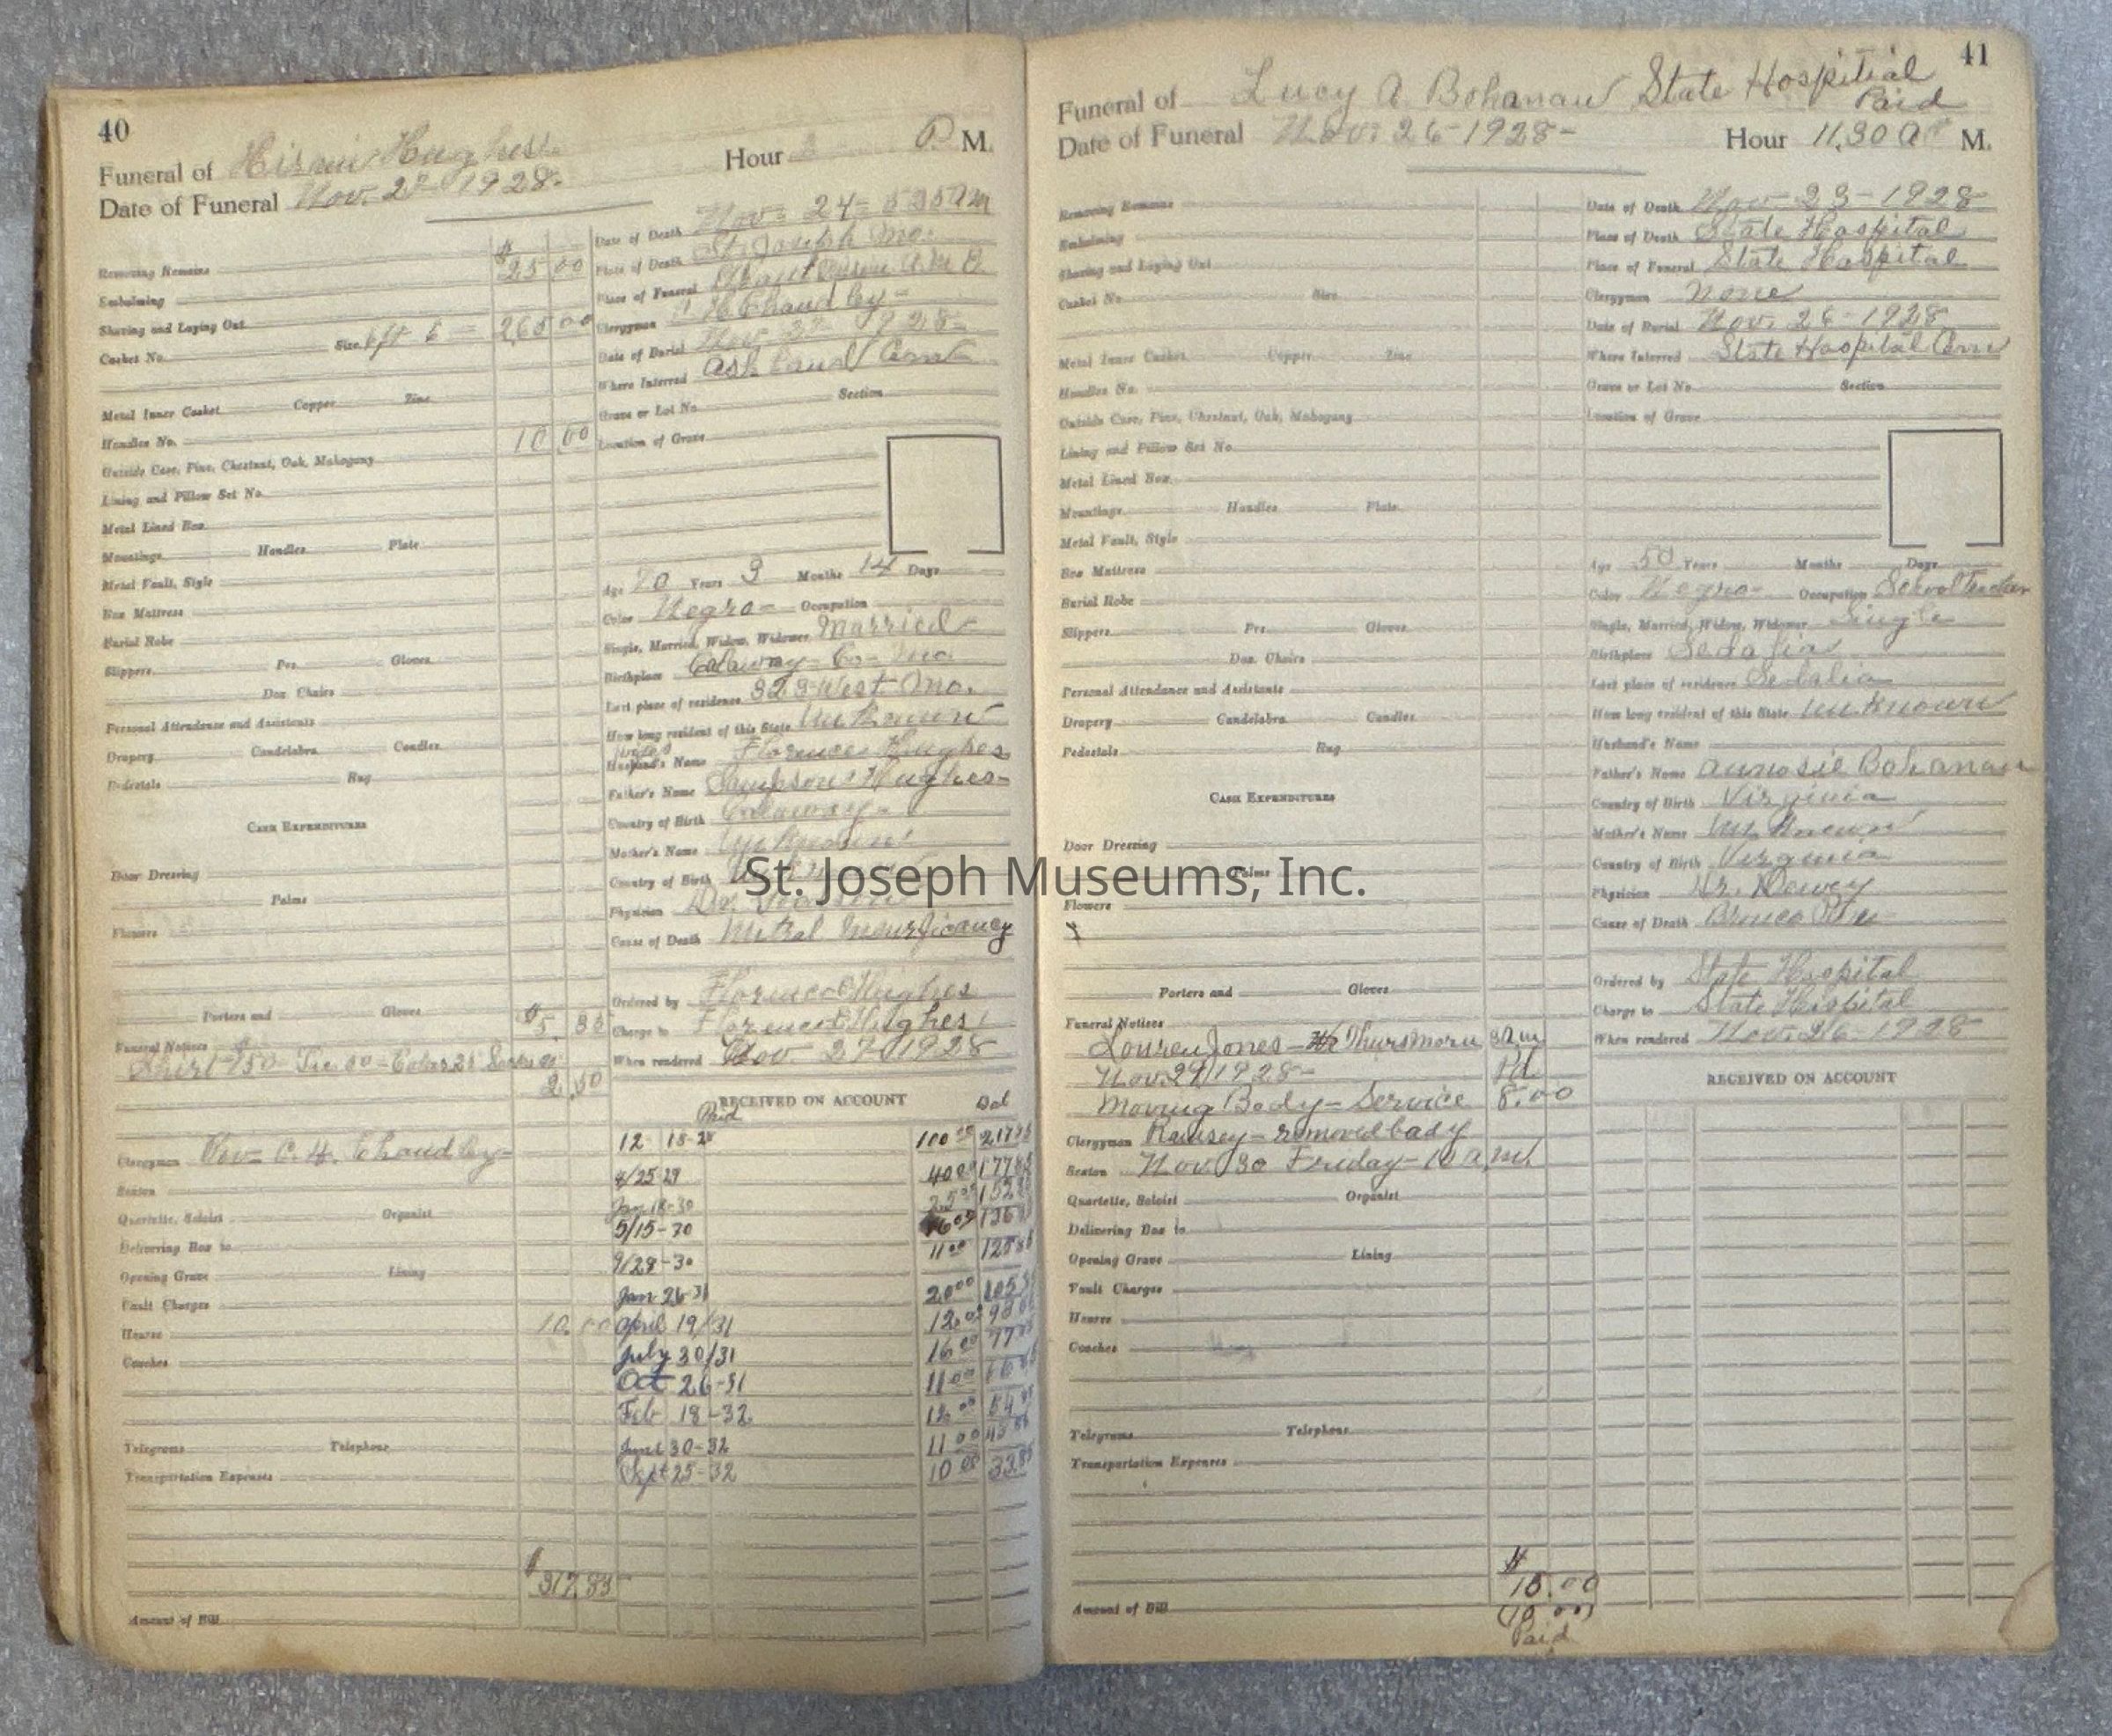 40
Funeral of Hughes
Hour P. M.
Date of Funeral Nov. 1928-
Date of Death Nov- 24- 5 35 AM
Removing Remains $ 25 00
Place of Death St. Joseph Mo.
Embalming
Place of Funeral
Shaving and Laying Out
Clergyman C H Chaudley-
Casket No. Size. 6ft 6 265 00
Date of Burial Nov 1928-
Where Interred Ashland Cem
Metal Inner Casket Copper Zinc
Grave or Lot No. Section
Handles No.
Location of Grave
Outside Case, Pine, Chestnut, Oak, Mahogany 10 00
Lining and Pillow Set No.
Metal Lined Box
Mountings Handles Plate
Metal Vault, Style
Age 70 Years 3 Months 14 Days
Box Mattress
Color Negro- Occupation
Burial Robe
Single, Married, Widow, Widower Married-
Slippers Prs. Gloves
Birthplace Calaway- Co- Mo
Doz. Chairs
Last place of residence 323 West Mo.
Personal Attendance and Assistants
How long resident of this State Unknown
Drapery Candelabra Candles
Husband's Name Florence Hughes
Pedestals Rug
Father's Name Sampson Hughes-
Country of Birth Calaway-
Cash Expenditures
Mother's Name Unknown
Door Dressing
Country of Birth
Palms
Physician Dr
Flowers
Cause of Death Mitral Insurficancy
Ordered by Florence Hughes
Porters and Gloves
Charge to Florence Hughes
Funeral Notices
When rendered Nov 27 1928
Shirt 150-
2.50
RECEIVED ON ACCOUNT
Paid Bal
Clergyman Rev- C. H. Chaudley-
12 18-28 100 00 217 85
Sexton
4/25 29 40 00 177 85
Quartette, Soloist Organist
Jan 18-30 25 00 152 85
Delivering Box to
5/15-30 16 00 136 85
Opening Grave Lining
9/28-30 11 00 125 85
Vault Charges
Jan 26-31 20 00 105 85
Hearse 10.00
April 19/31 12.00 93 85
Coaches
July 30/31 16 00 77 85
Oct 26-31 11 00 66 85
Feb 18-32 12 00 54 85
Telegrams Telephone
June 30-32 11 00 43 85
Transportation Expenses
Sept 25-32 10 00 33 85
$
317.85
Amount of Bill
41
Funeral of Lucy A Bohanan State Hospitial
Paid
Date of Funeral Nov. 26-1928- Hour 11.30 A M.
Removing Remains
Date of Death Nov 23-1928
Embalming
Place of Death State Hospital
Shaving and Laying Out
Place of Funeral State Hospital
Casket No. Size
Clergyman none
Date of Burial Nov. 26-1928
Metal Inner Casket Copper Zinc
Where Interred State Hospital Cem
Handles No.
Grave or Lot No. Section
Outside Case, Pine, Chestnut, Oak, Mahogany
Location of Grave
Lining and Pillow Set No.
Metal Lined Box
Mountings Handles Plate
Metal Vault, Style
Box Mattress
Age 50 Years Months Days
Burial Robe
Color Negro- Occupation School Teacher
Slippers Prs. Gloves
Single, Married, Widow, Widower Single
Doz. Chairs
Birthplace Sedalia
Personal Attendance and Assistants
Last place of residence Sedalia
Drapery Candelabra Candles
How long resident of this State Unknown
Pedestals Rug
Husband's Name
Father's Name Bohanan
Cash Expenditures
Country of Birth Virginia
Mother's Name Unknown
Door Dressing
Country of Birth Virginia
Palms
Physician Dr. Dewey
Flowers
Cause of Death
Ordered by State Hospital
Porters and Gloves
Charge to State Hospital
Funeral Notices
When rendered Nov. 26-1928
Jones- Thurs morn
Nov 29 1928- Pd
RECEIVED ON ACCOUNT
Moving Body- Service 8.00
Clergyman Ramsey- removed body
Sexton Nov 30 Friday- 10 a.m.
Quartette, Soloist Organist
Delivering Box to
Opening Grave Lining
Vault Charges
Hearse
Coaches
Telegrams Telephone
Transportation Expenses
$
10.00
Amount of Bill (10.00)
Paid
St. Joseph Museums, Inc.